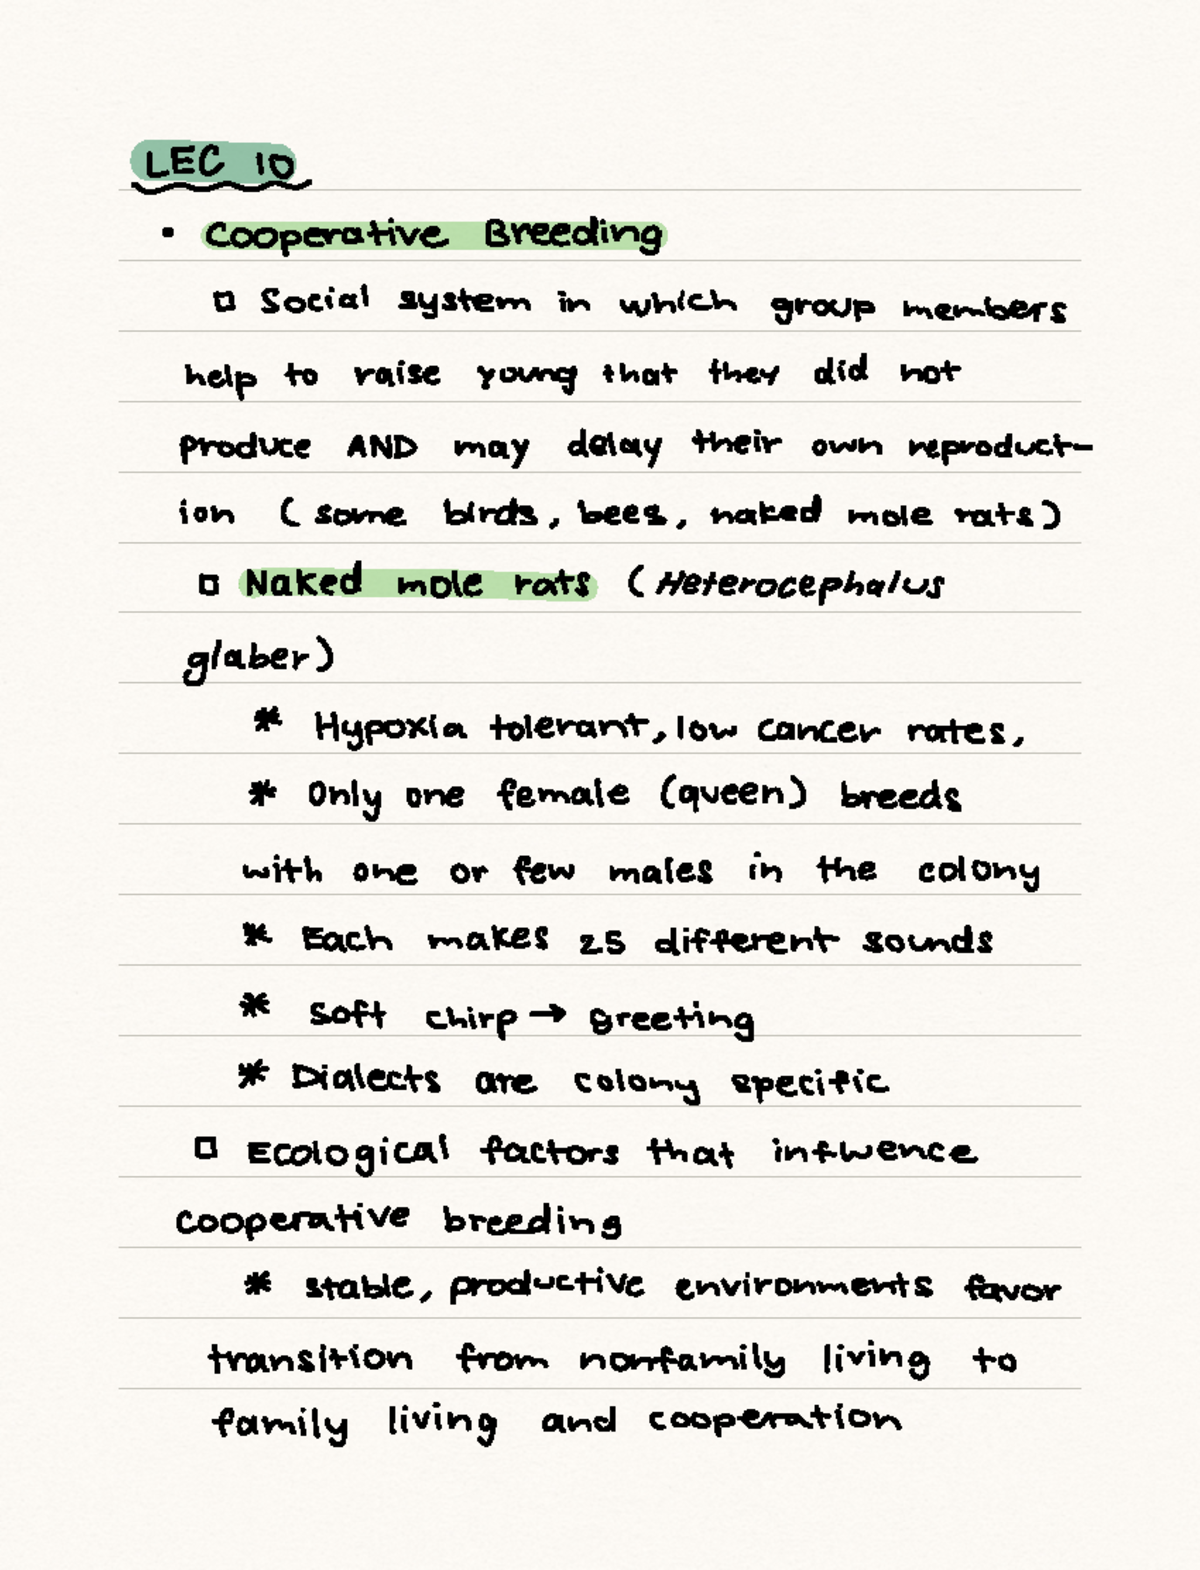 LEC 10
• Cooperative Breeding
□ Social system in which group members
help to raise young that they did not
produce AND may delay their own reproduct-
ion (some birds, bees, naked mole rats)
□ Naked mole rats (Heterocephalus
glaber)
* Hypoxia tolerant, low cancer rates,
* Only one female (queen) breeds
with one or few males in the colony
* Each makes 25 different sounds
* Soft chirp → greeting
* Dialects are colony specific
□ Ecological factors that influence
cooperative breeding
* stable, productive environments favor
transition from nonfamily living to
family living and cooperation